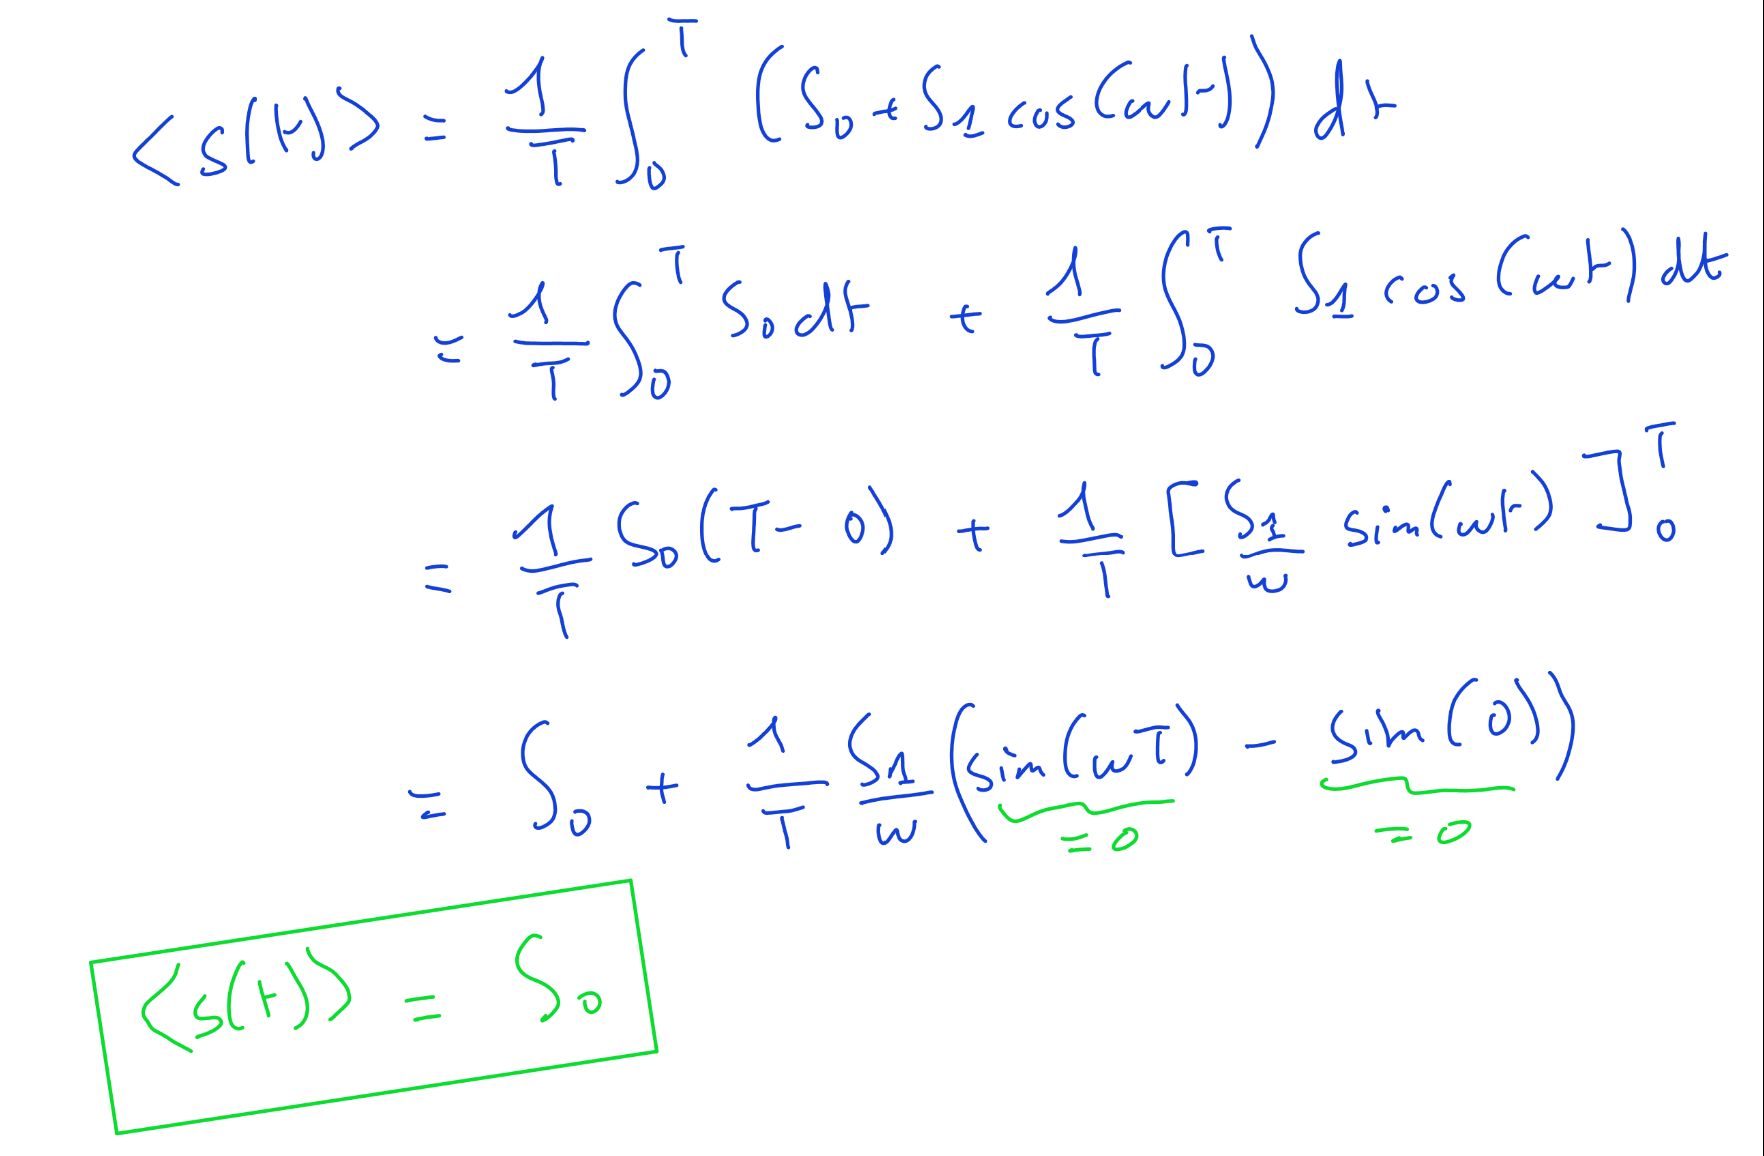 <s(t)> = 1/T ∫₀ᵀ (S₀ + S₁ cos(ωt)) dt
= 1/T ∫₀ᵀ S₀ dt + 1/T ∫₀ᵀ S₁ cos(ωt) dt
= 1/T S₀ (T - 0) + 1/T [S₁/ω sin(ωt)]₀ᵀ
= S₀ + 1/T S₁/ω (sin(ωT) - sin(0))
= 0 = 0
<s(t)> = S₀